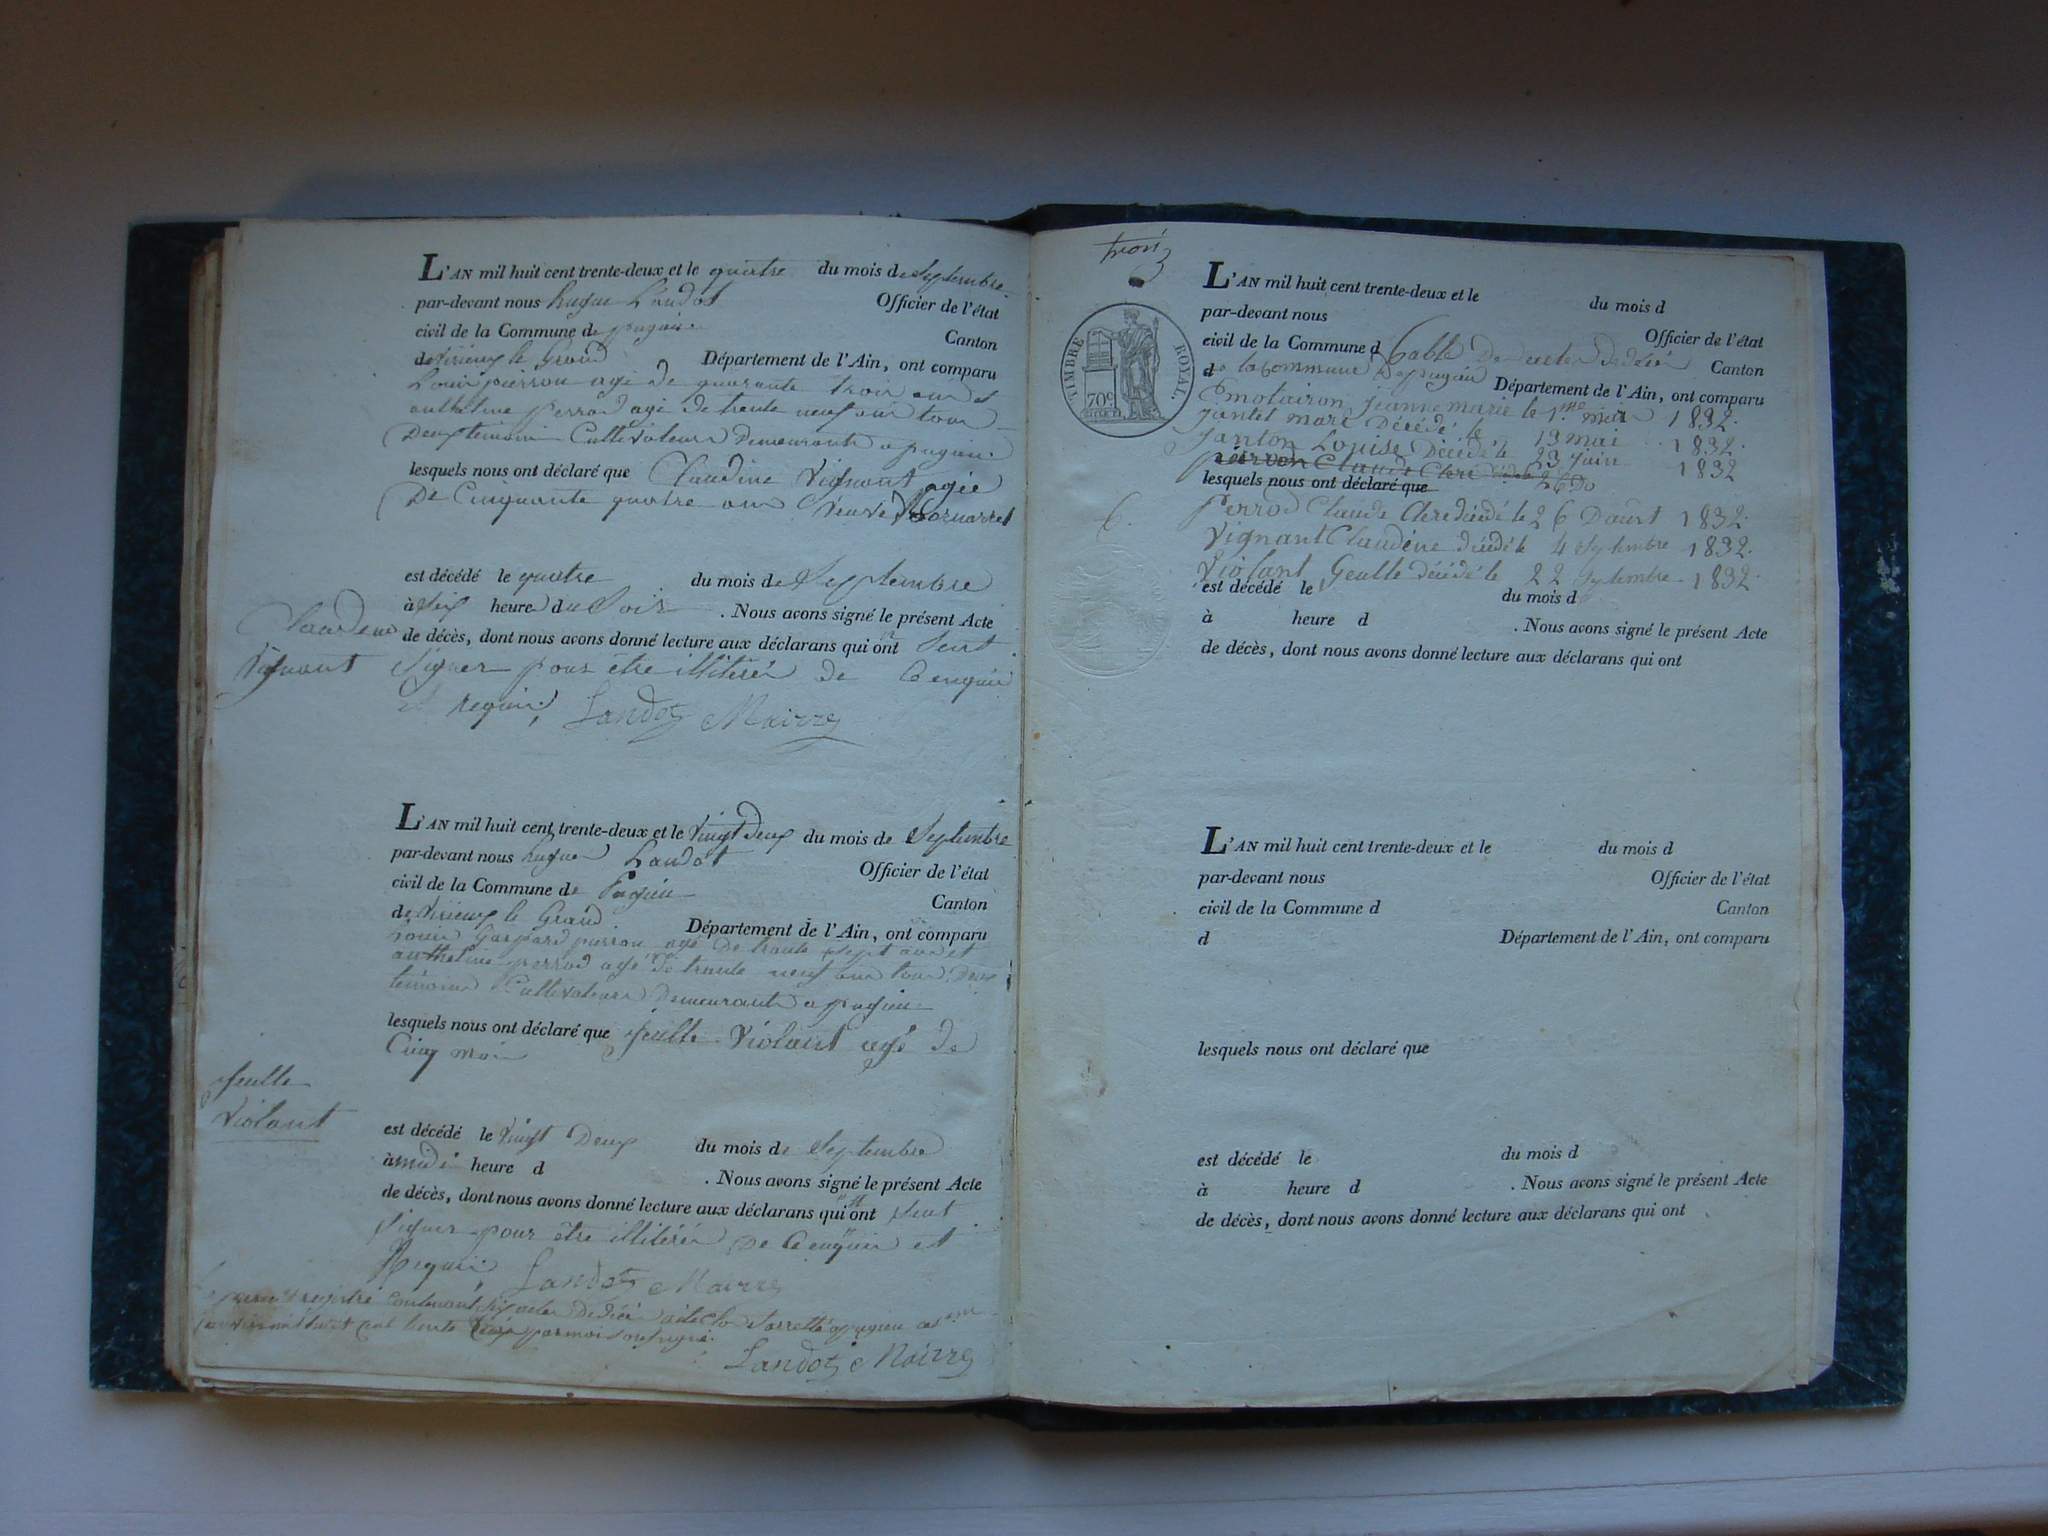 L'AN mil huit cent trente-deux et le quatre du mois de Septembre
par-devant nous hugue Landot Officier de l'état
civil de la Commune de pugieu Canton
de Virieux le Grand Département de l'Ain, ont comparu
Louis pierron agé de quarante trois ans et
anthelme perrod agé de trente neuf ans tous
Deux temoins Cultivateurs Demeurants a pugieu
lesquels nous ont déclaré que Claudine Vignant agée
De Cinquante quatre ans veuve
est décédé le quatre du mois de Septembre
à Six heure du Soir . Nous avons signé le présent Acte
Claudine
de décès, dont nous avons donné lecture aux déclarans qui ont
Vignant
Signer pour etre illiterés de Ce enquis
et requis, Landot Mairre
L'AN mil huit cent trente-deux et le Vingt Deux du mois de Septembre
par-devant nous hugue Landot Officier de l'état
civil de la Commune de Pugieu Canton
de Virieux le Grand Département de l'Ain, ont comparu
Louis Gaspard pierron agé De trante Sept ans et
anthelme perrod agé de trante neuf ans tous Deux
témoins Cultivateurs Demeurants a pugieu
lesquels nous ont déclaré que feulle Violant agé de
Cinq mois
feulle
Violant
est décédé le Vingt Deux du mois de Septembre
à midi heure d . Nous avons signé le présent Acte
de décès, dont nous avons donné lecture aux déclarans qui ont
Signer pour être illiterés De Ce enquis et
Requis, Landot Mairre
present registre Contenant Six actes De déces
Landot Mairre
trois
TIMBRE ROYAL.
70c
L'AN mil huit cent trente-deux et le du mois d
par-devant nous Officier de l'état
civil de la Commune d Table De actes De déces Canton
d de la Commune De pugieu Département de l'Ain, ont comparu
Emotairon jeanne marie le 1.me mai 1832.
jantet marc Décédé le 13 mai 1832.
janton Louise Décédé le 23 juin 1832
pierron Claude Clere
lesquels nous ont déclaré que
6.
Perrod Claude Clere décédé le 26 Doust 1832.
Vignant Claudéne décédé le 4 Septembre 1832.
Violant Geulle décédé le 22 Septembre 1832.
est décédé le du mois d
à heure d . Nous avons signé le présent Acte
de décès, dont nous avons donné lecture aux déclarans qui ont
L'AN mil huit cent trente-deux et le du mois d
par-devant nous Officier de l'état
civil de la Commune d Canton
d Département de l'Ain, ont comparu
lesquels nous ont déclaré que
est décédé le du mois d
à heure d . Nous avons signé le présent Acte
de décès, dont nous avons donné lecture aux déclarans qui ont